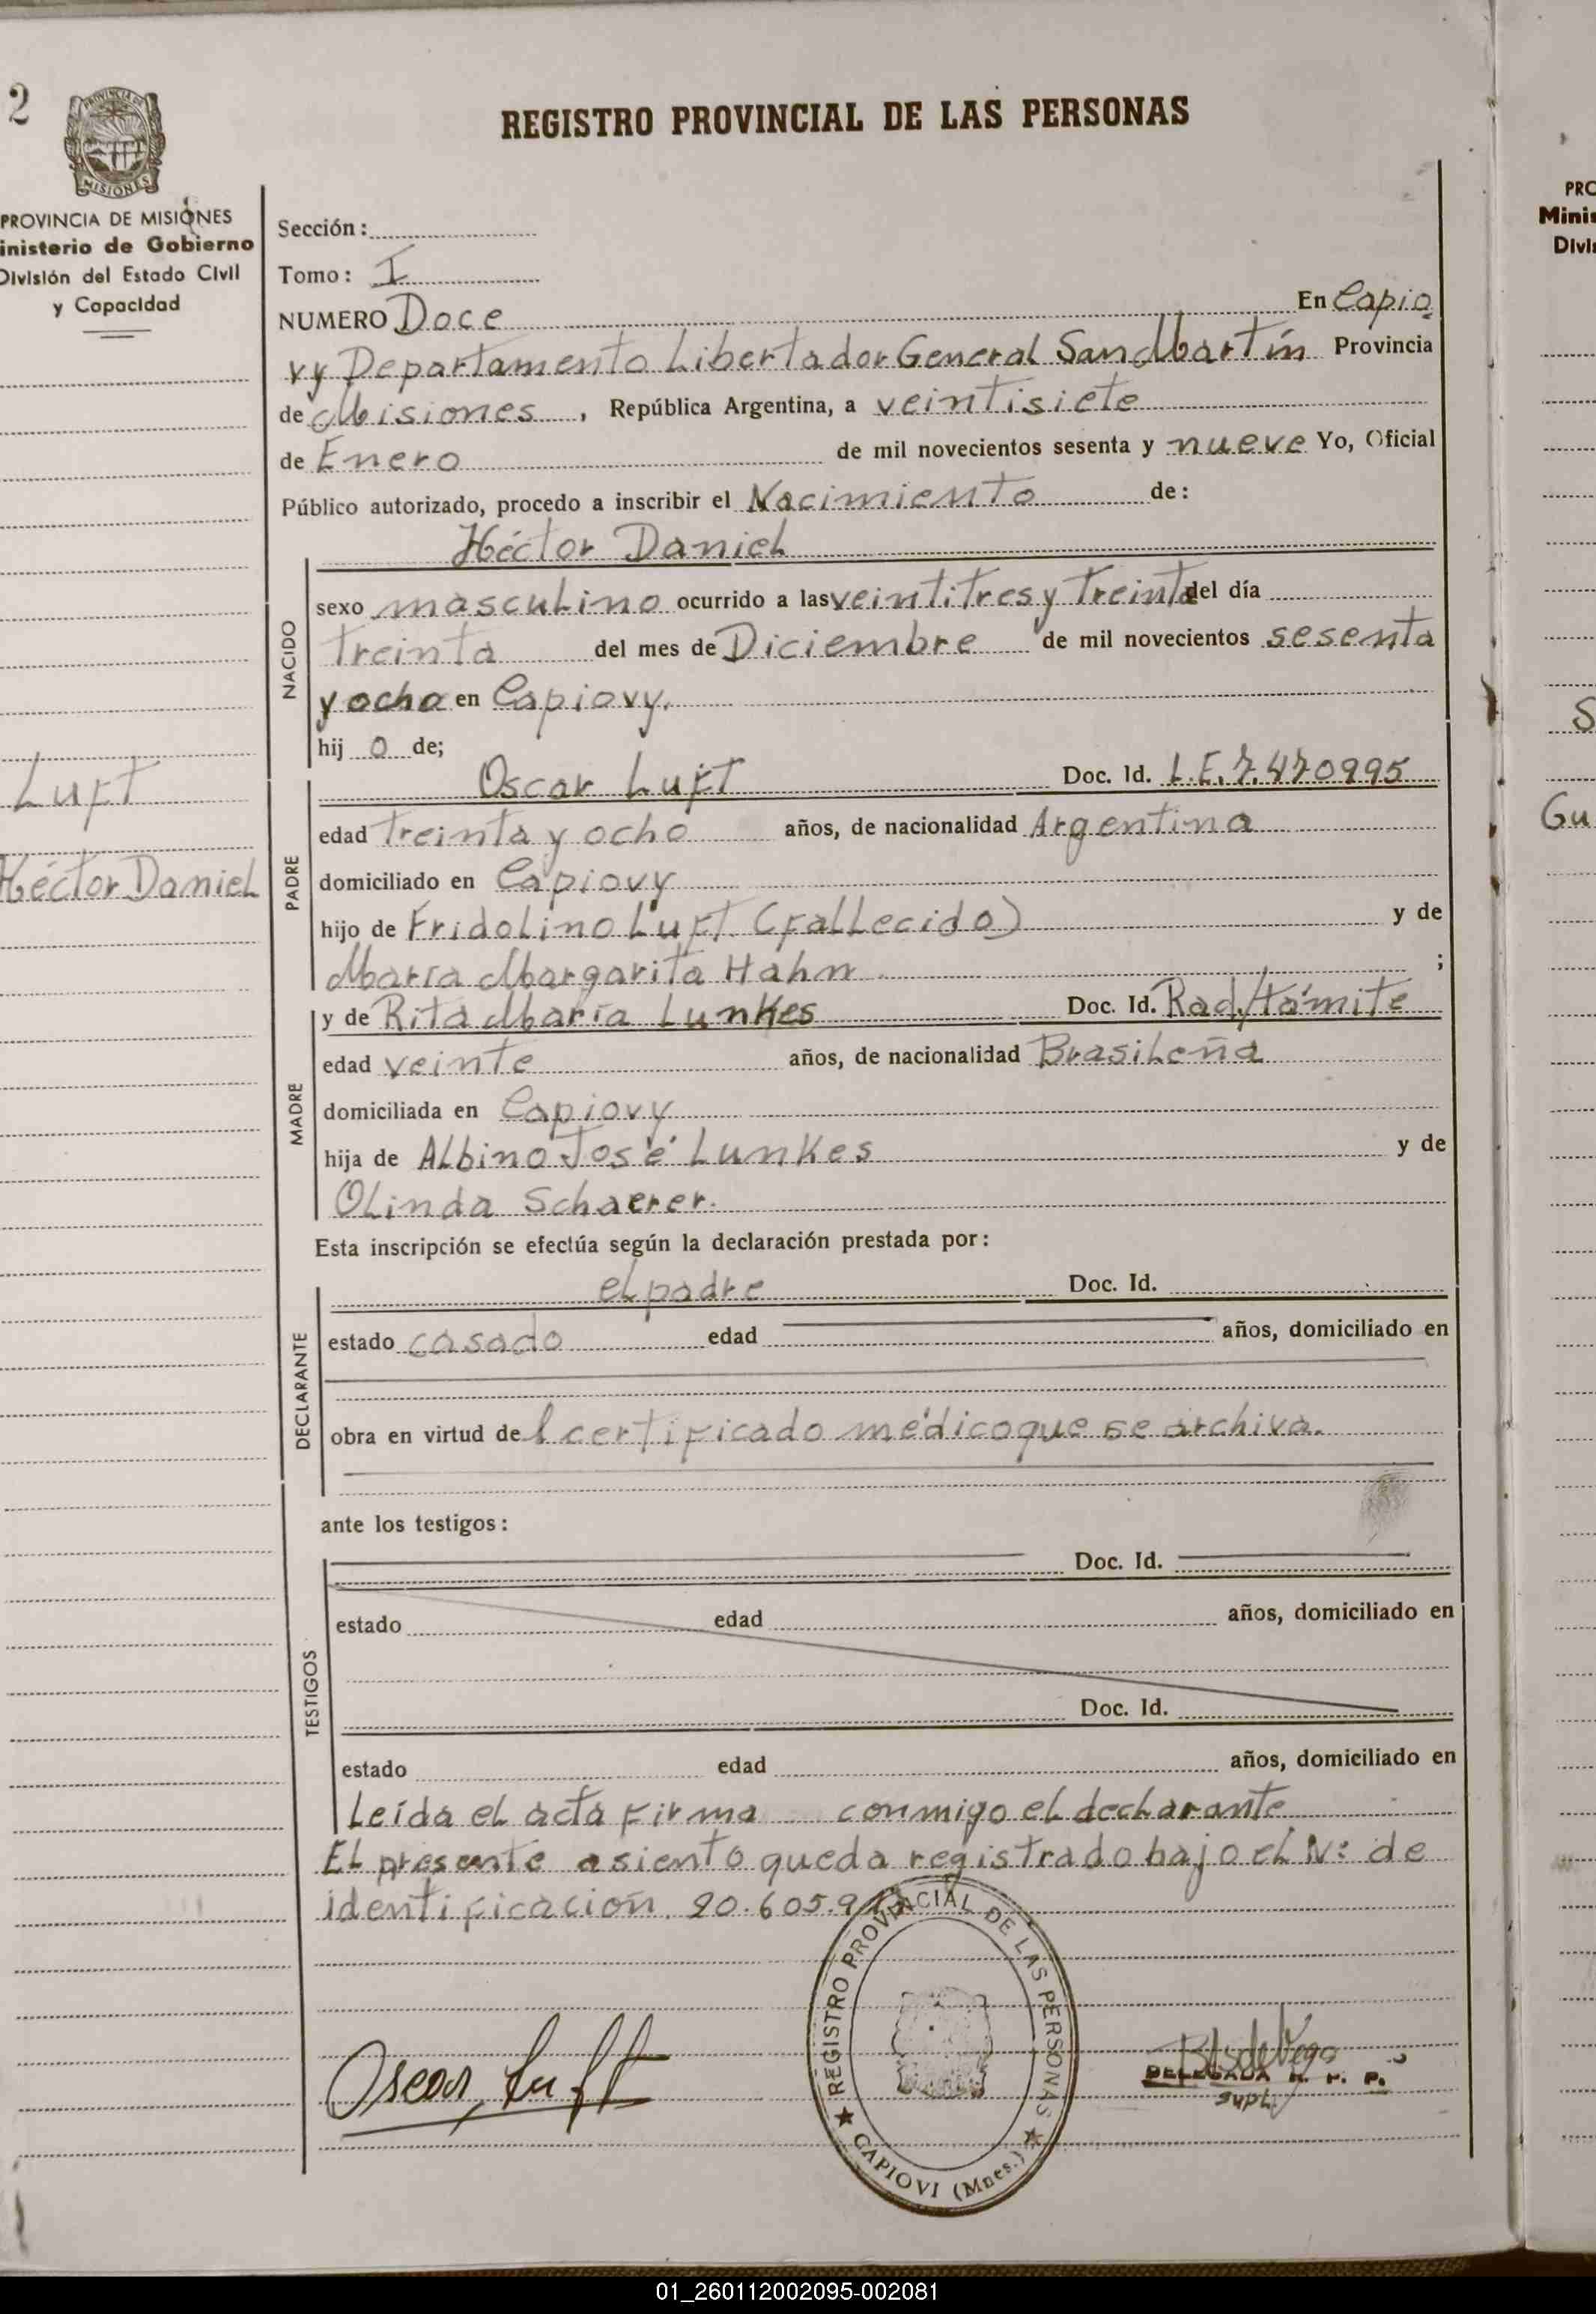 2
PROVINCIA DE MISIONES
inisterio de Gobierno
División del Estado Civil
y Capacidad
REGISTRO PROVINCIAL DE LAS PERSONAS
Sección:
Tomo: I
NUMERO Doce En Capio
vy Departamento Libertador General San Martín Provincia
de Misiones, República Argentina, a veintisiete
de Enero de mil novecientos sesenta y nueve Yo, Oficial
Público autorizado, procedo a inscribir el Nacimiento de:
Héctor Daniel
NACIDO
sexo masculino ocurrido a las veintitres y treinta del día
treinta del mes de Diciembre de mil novecientos sesenta
y ocho en Capiovy.
hij o de;
Luft
Héctor Daniel
PADRE
Oscar Luft Doc. Id. L.E. 7.470995
edad treinta y ocho años, de nacionalidad Argentina
domiciliado en Capiovy
hijo de Fridolino Luft (fallecido) y de
María Margarita Hahn ;
MADRE
y de Rita María Lunkes Doc. Id. Rad./támite
edad veinte años, de nacionalidad Brasileña
domiciliada en Capiovy
hija de Albino José Lunkes y de
Olinda Schaerer.
Esta inscripción se efectúa según la declaración prestada por:
DECLARANTE
el padre Doc. Id.
estado casado edad años, domiciliado en
obra en virtud de l certificado médico que se archiva.
ante los testigos:
TESTIGOS
Doc. Id.
estado edad años, domiciliado en
Doc. Id.
estado edad años, domiciliado en
Leída el acta firma conmigo el declarante
El presente asiento queda registrado bajo el Nº de
identificación 20.605.9
REGISTRO PROVINCIAL DE LAS PERSONAS
CAPIOVI (Mnes.)
Oscar Luft
DELEGADA R. P. P.
supl.
PRO
Minis
Divi
S
Gu
01_260112002095-002081